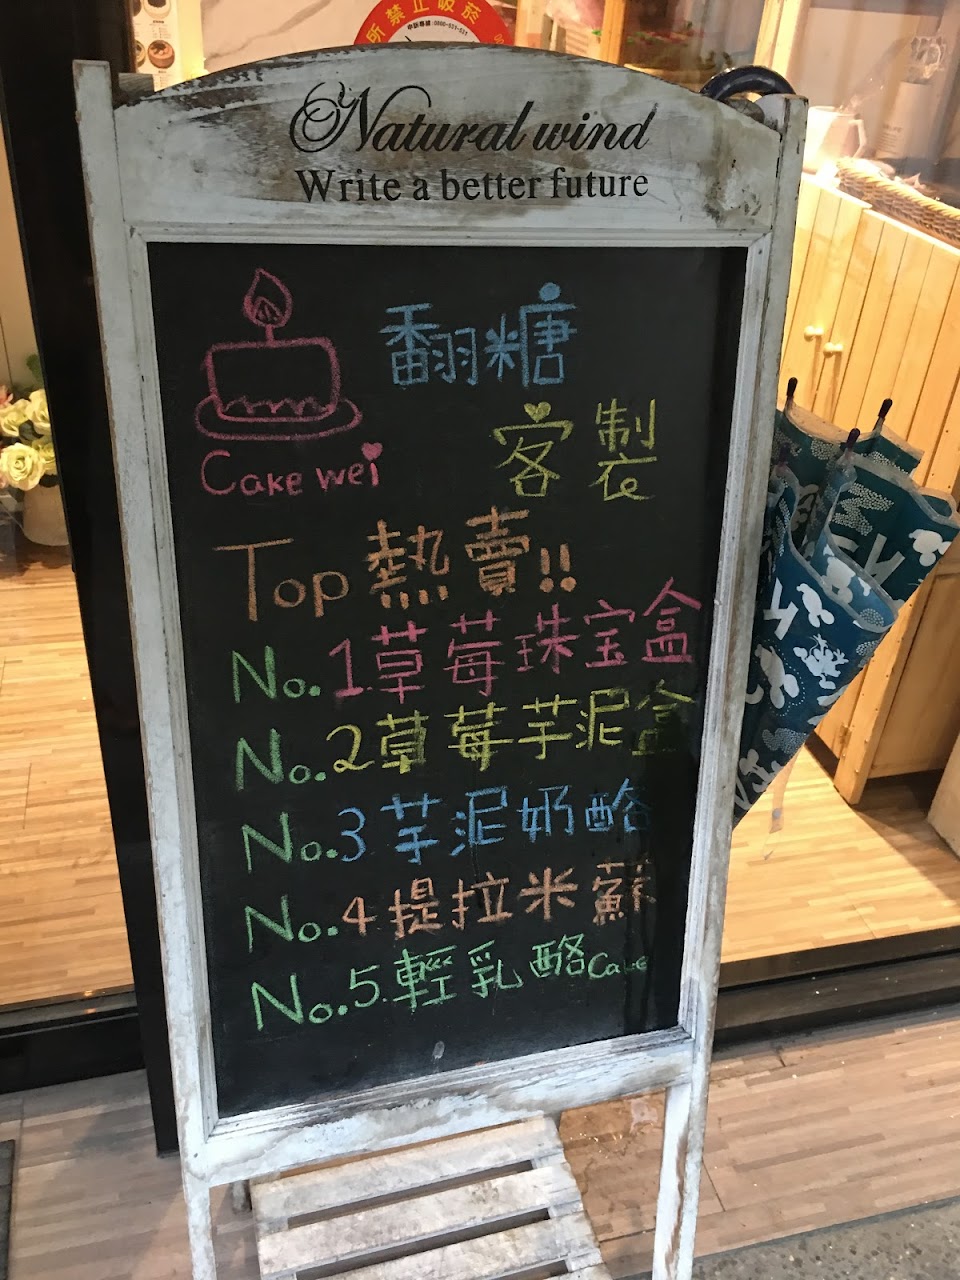 所禁止吸菸
申訴專線:0800-531-531
Natural wind
Write a better future
翻糖
Cake wei
客製
Top 熱賣!!
No.1草莓珠宝盒
No.2草莓芋泥盒
No.3芋泥奶酪
No.4提拉米蘇
No.5.輕乳酪Cake